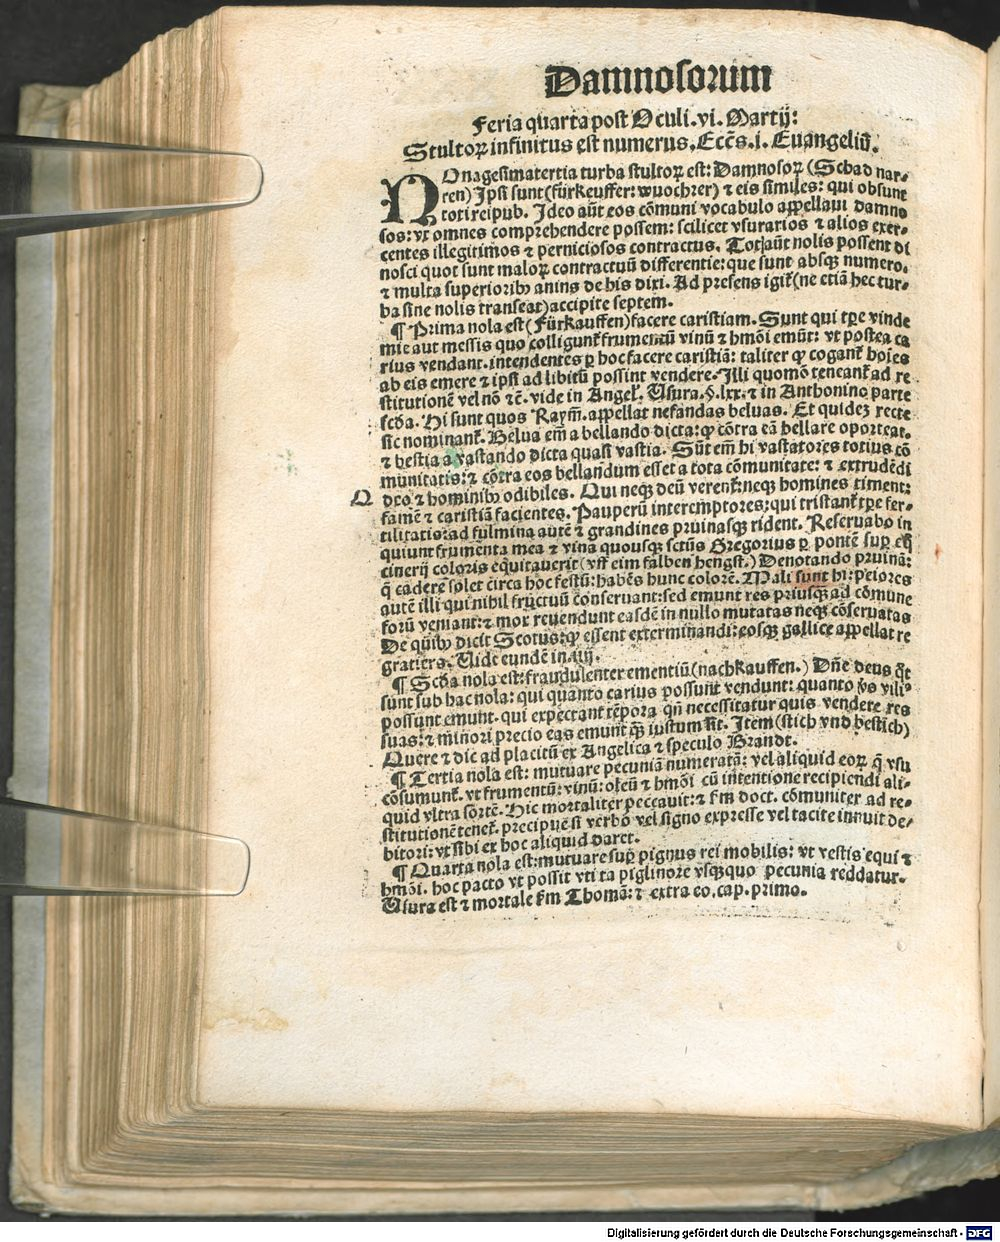 Damnosorum
Feria quarta post Oculi.vi.Martij:
Stultoꝝ infinitus est numerus.Eccẽs.i.Euangeliũ.
NOnagesimatertia turba stultoꝝ est: Damnosoꝝ (Schad nar⸗
ren) Ipsi sunt (fürkeuffer: wuochrer) ⁊ eis similes: qui obsunt
toti reipub. Ideo aũt eos cõmuni vocabulo appellaui damno
sos: vt omnes comprehendere possem: scilicet vsurarios ⁊ alios exer⸗
centes illegitimos ⁊ perniciosos contractus. Tot aũt nolis possent di
nosci quot sunt maloꝝ contractuũ differentie: que sunt absqꝫ numero.
⁊ multa superioribꝰ annis de his dixi. Ad presens igiť (ne etiã hec tur⸗
ba sine nolis transeat) accipite septem.
¶ Prima nola est (Fürkauffen) facere caristiam. Sunt qui tꝑe vinde
mie aut messis quo colligunť frumentũ vinũ ⁊ hmõi emũt: vt postea ca
rius vendant. intendentes ꝑ hoc facere caristiã: taliter ꝙ coganť hoĩes
ab eis emere ⁊ ipsi ad libitũ possint vendere. Illi quomõ teneanť ad re
stitutionẽ vel nõ ⁊c̃. vide in Angeľ. Vsura.§.lxx. ⁊ in Anthonino parte
scḋa. Hi sunt quos Raym̃. appellat nefandas beluas. Et quidez recte
sic nominanť. Belua em̃ a bellando dicta: ꝙ cõtra eã bellare oporteat.
⁊ bestia a vastando dicta quasi vastia. Sũt em̃ hi vastatores totius cõ
munitatis: ⁊ cõtra eos bellandum esset a tota cõmunitate: ⁊ extrudẽdi
Q
deo ⁊ hominibꝰ odibiles. Qui neqꝫ deũ verenť: neqꝫ homines timent:
famẽ ⁊ caristiã facientes. Pauperũ interemptores: qui tristanť tꝑe fer⸗
tilitatis: ad fulmina autẽ ⁊ grandines pruinasqꝫ rident. Reseruabo in
quiunt frumenta mea ⁊ vina quousqꝫ sctũs Gregorius ꝑ pontẽ suꝑ eq̃
cinerij coloris equitauerit (vff eim falben hengst.) Denotando pruinã:
q̃ cadere solet circa hoc festũ: habẽs hunc colorẽ. Mali sunt hi: peiores
autẽ illi qui nihil fructuũ conseruant: sed emunt res priusq̃ ad cõmune
forũ veniant: ⁊ mox reuendunt easdẽ in nullo mutatas neqꝫ cõseruatas
De quibꝰ dicit Scotus: ꝙ essent exterminandi: eosqꝫ gallice appellat re
gratiers. Vide eundẽ in.iiij.
¶ Scḋa nola est: fraudulenter ementiũ (nachkauffen.) Dñe deus q̃t
sunt sub hac nola: qui quanto carius possunt vendunt: quanto v̾o vili⸗
possunt emunt. qui expectant tẽpora qñ necessitatur quis vendere res
suas: ⁊ minori precio eas emunt q̃ iustum sit. Item (stich vnd bestich)
Quere ⁊ dic ad placitũ ex Angelica ⁊ speculo Brandt.
¶ Tertia nola est: mutuare pecuniã numeratã: vel aliquid eoꝝ q̃ vsu
cõsumunť. vt frumentũ: vinũ: oleũ ⁊ hmõi cũ intentione recipiendi ali⸗
quid vltra sortẽ. Hic mortaliter peccauit: ⁊ fm doct. cõmuniter ad re⸗
stitutionẽ teneť. precipue si verbo vel signo expresse vel tacite innuit de⸗
bitori: vt sibi ex hoc aliquid daret.
¶ Quarta nola est: mutuare suꝑ pignus rei mobilis: vt vestis equi ⁊
hmõi. hoc pacto vt possit vti ta piglinore vsqꝫquo pecunia reddatur.
Vsura est ⁊ mortale fm Thomã: ⁊ extra eo. cap. primo.
Digitalisierung gefördert durch die Deutsche Forschungsgemeinschaft - DFG